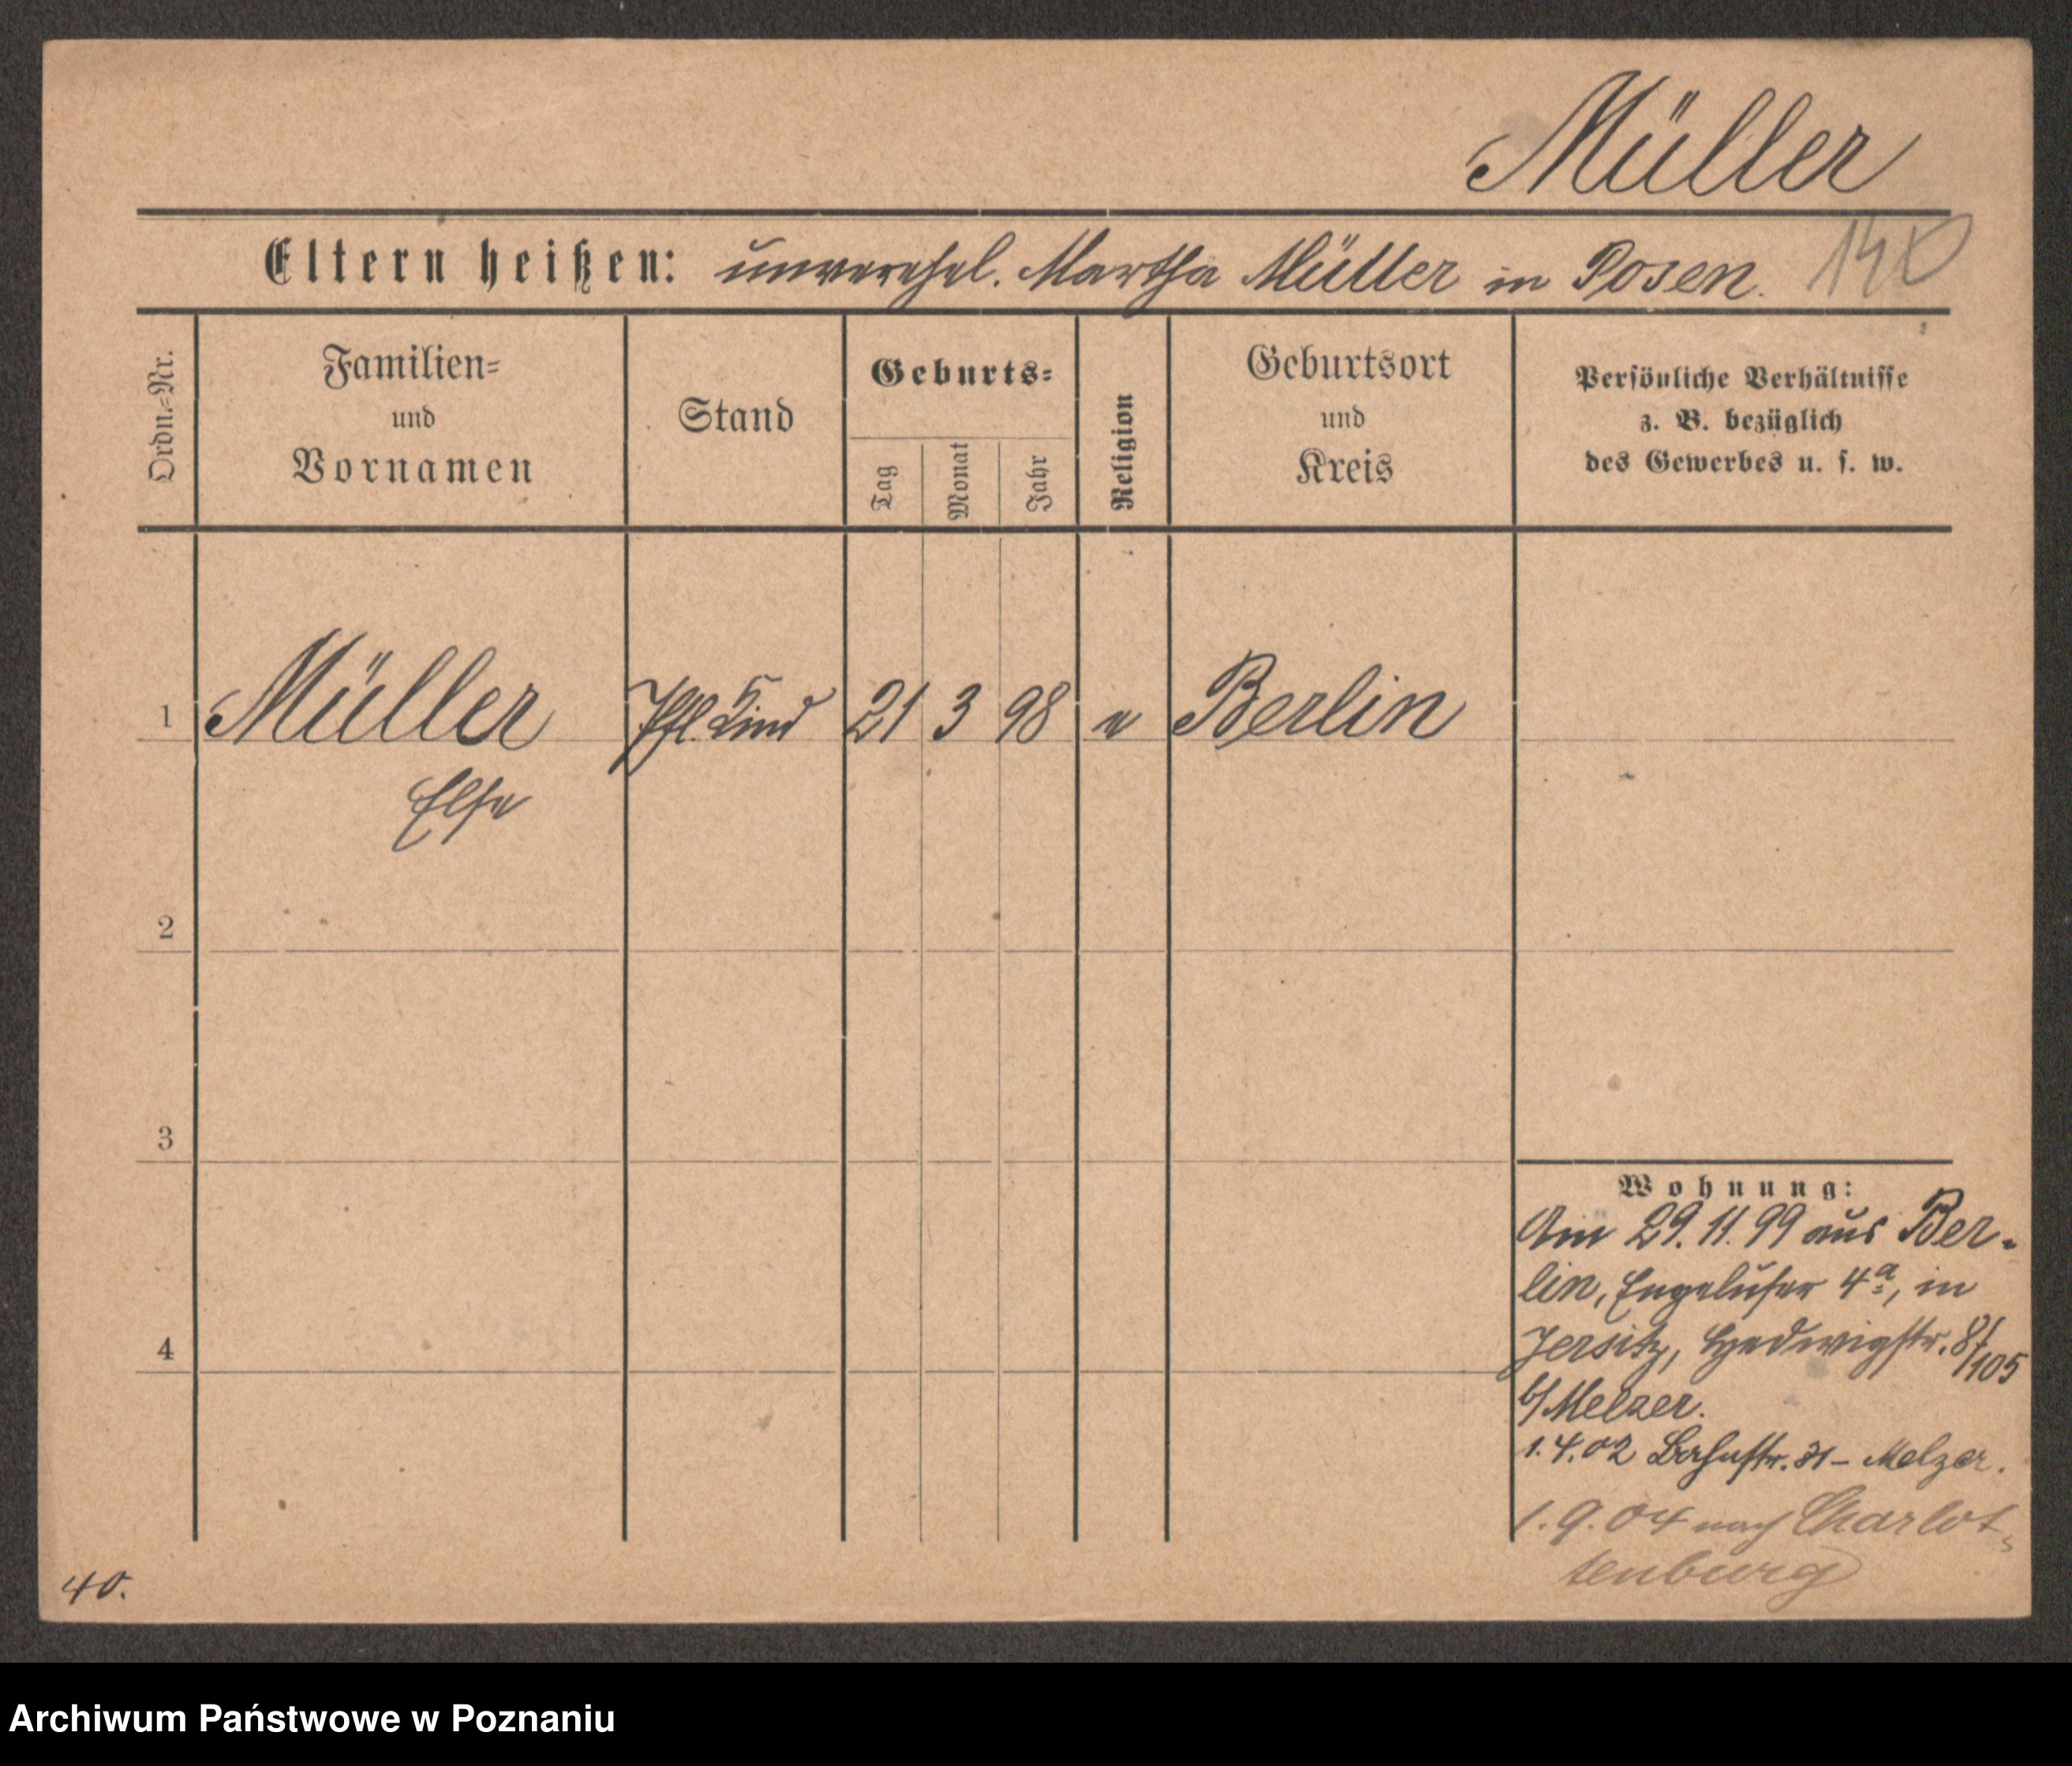 Müller
Eltern heißen: unverehel. Martha Müller in Posen.
Ordn.=Nr.
Familien=
und
Vornamen
Stand
Geburts=
Tag
Monat
Jahr
Religion
Geburtsort
und
Kreis
Persönliche Verhältnisse
z. B. bezüglich
des Gewerbes u. s. w.
1 Müller Pfl. Kind 21 3 98 e Berlin
Else
2
3
4
Wohnung:
Am 29.11.99 aus Ber-
lin, Engelufer 4a, in
Jersitz, Hedwigstr. 8/105
b/Melzer.
1.4.02 31 – Melzer.
1.9.04 nach Charlot-
tenburg
40.
Archiwum Państwowe w Poznaniu